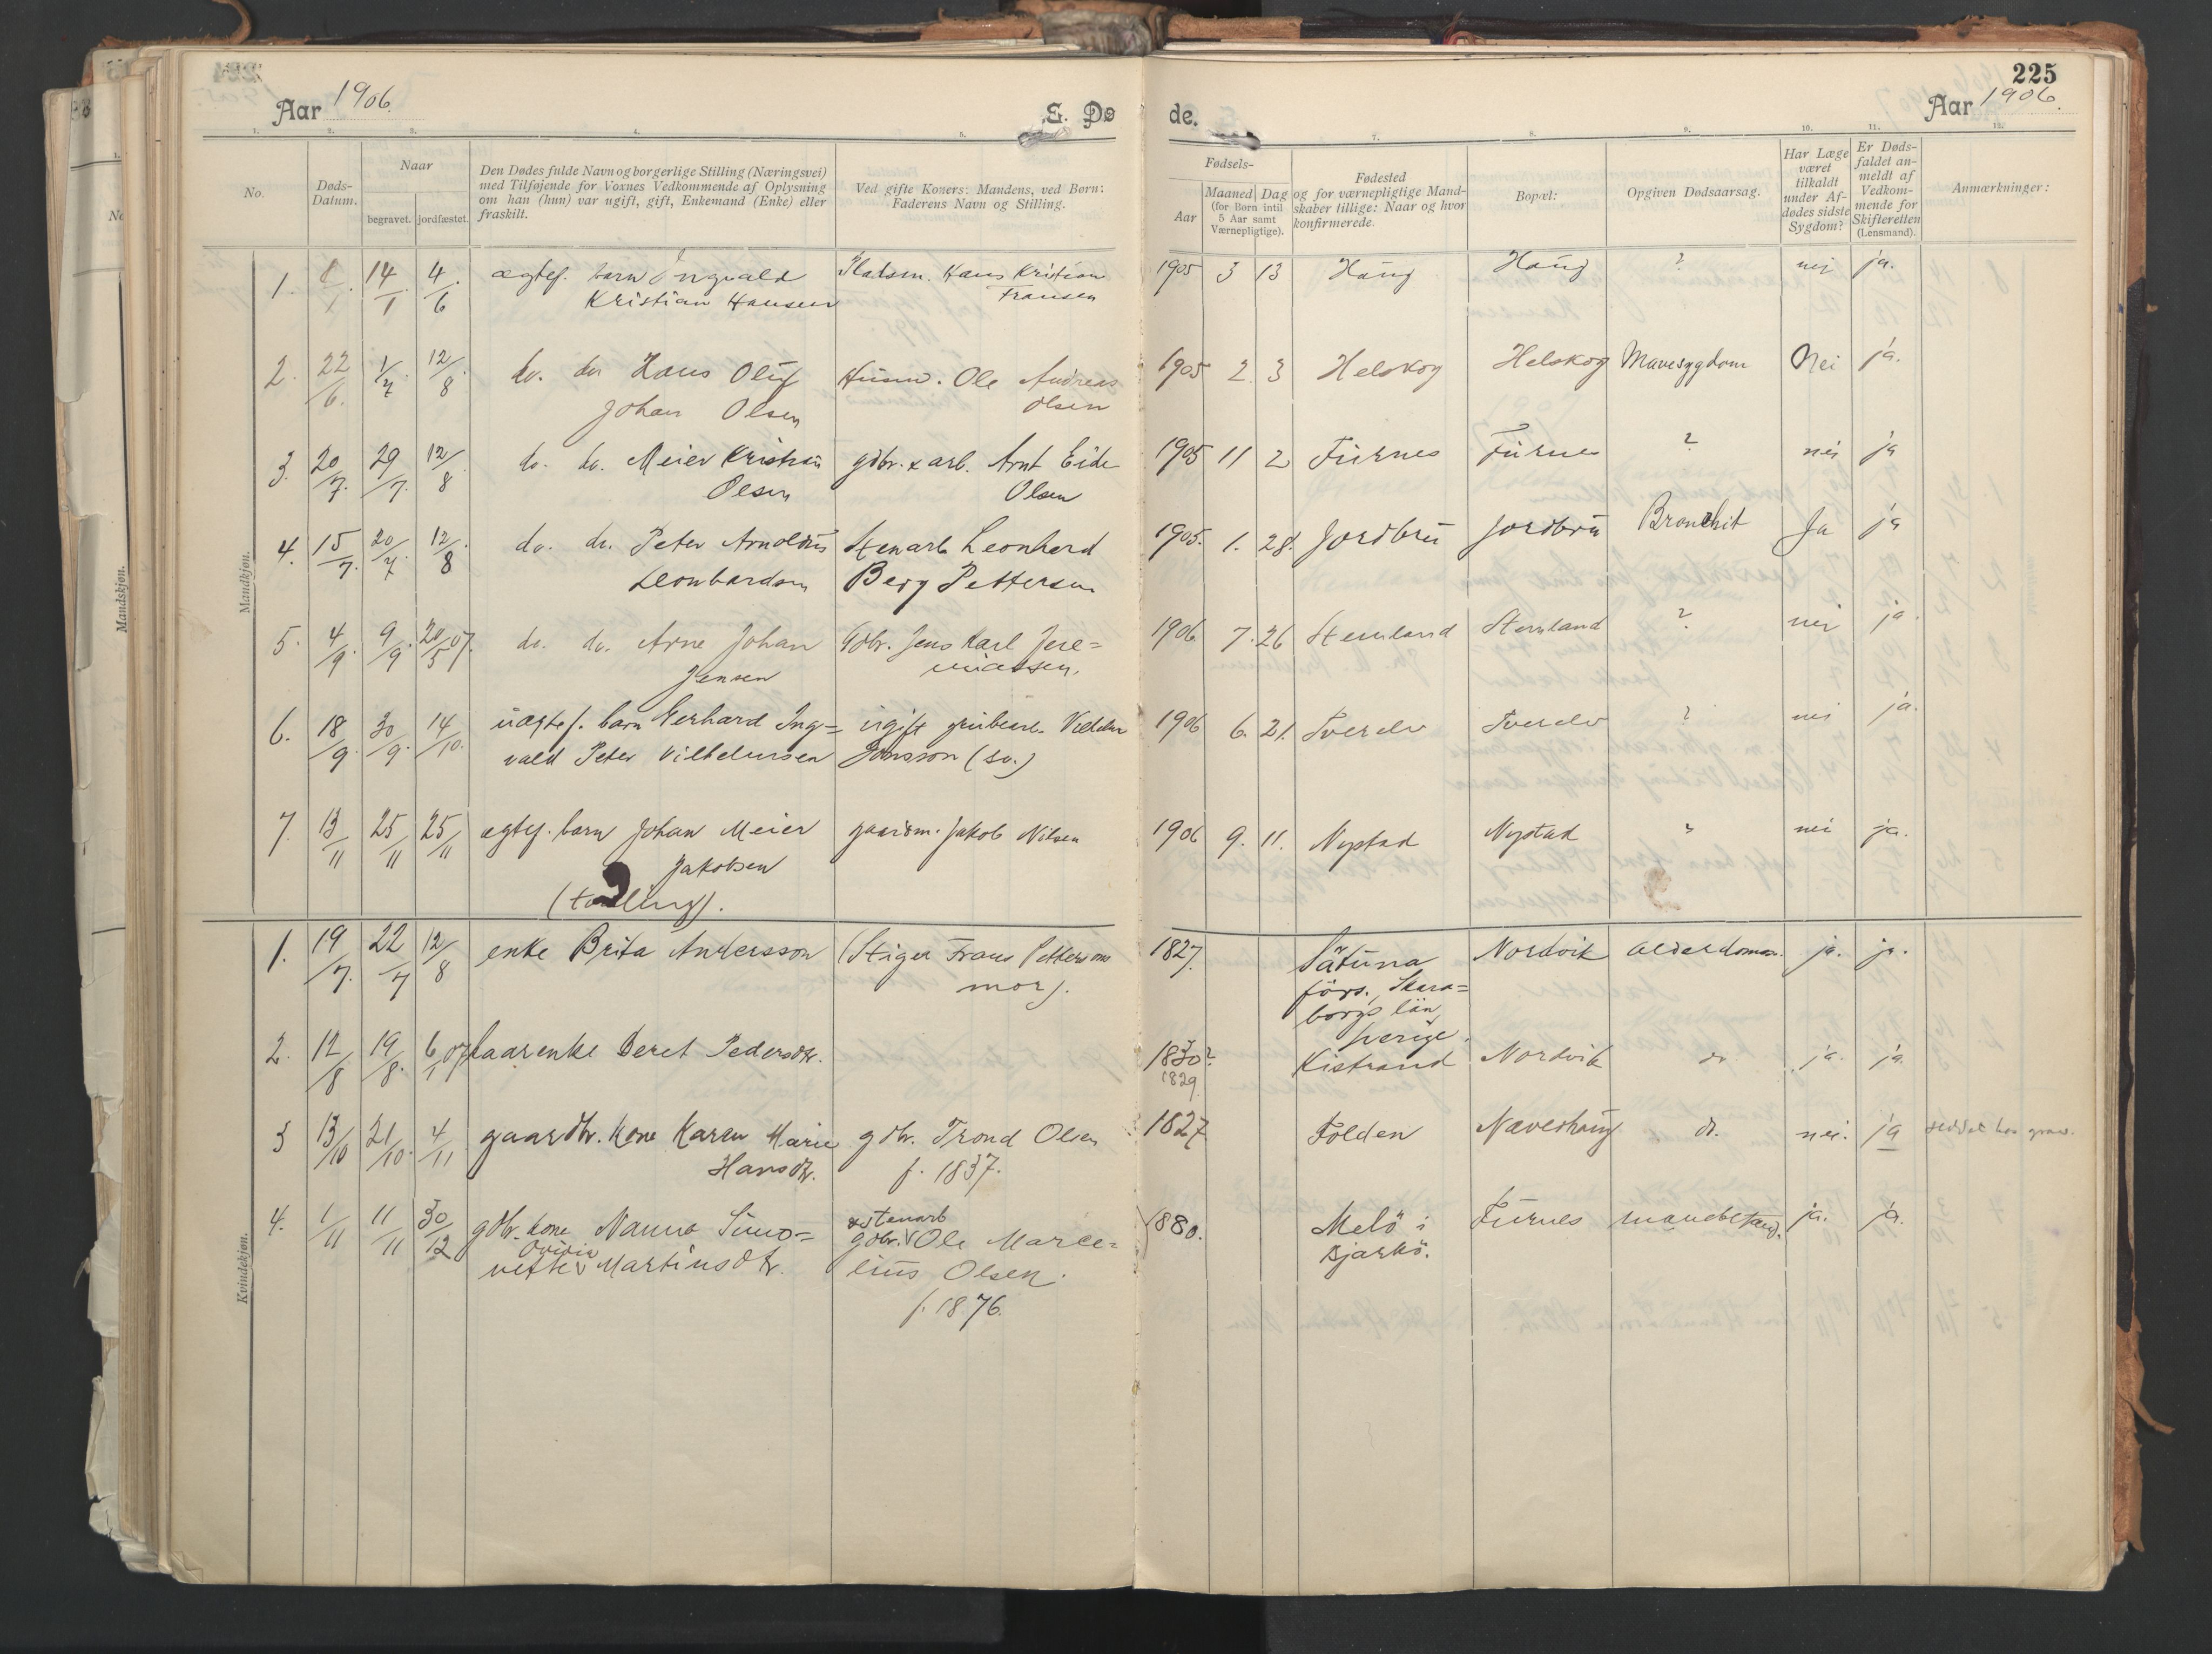 225
Aar 1906.
E. Dø
de.
Aar 1906.
1. 2. 3. 4. 5. 7. 8. 9. 10. 11. 12.
No.
Døds-
Datum.
Naar
begravet. jordfæstet.
Den Dødes fulde Navn og borgerlige Stilling (Næringsvei)
med Tilføjende for Voxnes Vedkommende af Oplysning
om han (hun) var ugift, gift, Enkemand (Enke) eller
fraskilt.
Ved gifte Koners: Mandens, ved Børn:
Faderens Navn og Stilling.
Fødsels-
Aar
Maaned Dag
(for Børn intil
5 Aar samt
Værnepligtige).
Fødested
og for værnepligtige Mand-
skaber tillige: Naar og hvor
konfirmerede.
Bopæl:
Opgiven Dødsaarsag.
Har Læge
været
tilkaldt
under Af-
dødes sidste
Sygdom?
Er Døds-
faldet an-
meldt af
Vedkom-
mende for
Skifteretten
(Lensmand).
Anmærkninger:
Mandkjøn.
1. 14/1 4/6 ægtef. barn Ingvald Pladsm. Hans Kristian 1905 3 13 Haug Haug ? nej ja.
Kristian Hansen Fransen
2. 22/6. 1/7. 12/8. do. do. Hans Oluf Husm. Ole Andreas 1905 2 3 Helskog Helskog Mavesygdom Nei ja.
Johan Olsen Olsen
3. 20/7. 29/7. 12/8 do. do. Meier Kristian gdbr. & arb. Arnt Eide 1905 11 2 Furnes Furnes ? nei ja
Olsen Olsen
4. 15/7. 20/7. 12/8. do. do. Peter Arnoldus Stenarb. Leonhard 1905. 1. 28. Jordbru Jordbru Bronchit Ja ja
Leonhardsen Berg Pettersen
5. 4/9. 9/9. 20/5 07. do. do. Arne Johan Gdbr. Jens Karl Jere= 1906 7. 26 Stemland Stemland ? nei ja.
Jensen miassen.
6. 18/9. 30/9. 14/10. uægtef. barn Gerhard Ing= ugift grubearb. Vilhelm 1906 6. 21. Tverelv Tverelv ? nei ja.
vald Peter Vilhelmsen Jonsson (sv.)
7. 13/11 25/11 25/11 ægtef. barn Johan Meier gaardm. Jakob Nilsen 1906 9. 11. Nystad Nystad ? nei ja.
Jakobsen
(tvilling).
Kvindekjøn.
1. 19/7. 22/7 12/8 enke Brita Andersson (Stiger Frans Petterssons 1827. Såtuna Nordvik Alderdomssv. ja. ja.
mor).
förs., Skara=
borgs län,
Sverige.
2. 12/8 19/8. 6/1 07 kaarenke Beret Pedersdtr. 1830? Kistrand Nordvik do ja. ja.
1829.
3 13/10 21/10. 4/11 gaardbr. kone Karen Marie gdbr. Trond Olsen 1827 Folden Næveshaug do. nei. ja
Hansdtr. f. 1837.
4. 1/11 11/11 30/12 gdbr. kone Nanna Simo= & stenarb
gdbr. Ole Marce= 1880. Melö i Furnes ja. ja.
Ovidie
vette Martinsdtr. lius Olsen. Bjarkö.
f. 1876.
Mandskjøn.